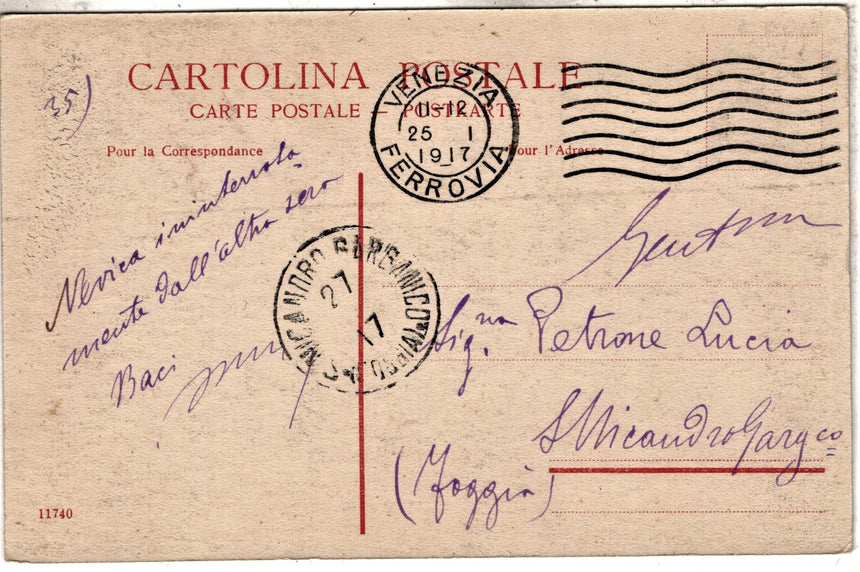 35)
CARTOLINA POSTALE
CARTE POSTALE – POSTKARTE
Pour la Correspondance
Pour l'Adresse
VENEZIA
11-12
25 1
1917
FERROVIA
Nevica ininterrota
mente dall'altra sera
Baci
SANNICANDRO GARGANICO
27
17
Sig.na Petrone Lucia
S Nicandro Garg.co
(Foggia)
11740